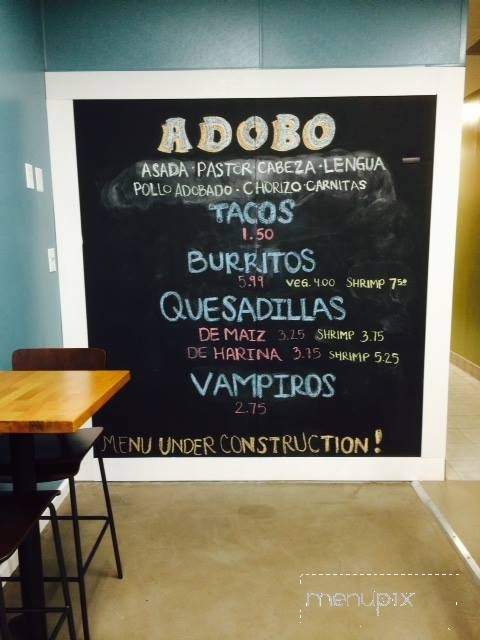 ADOBO
ASADA · PASTOR CABEZA · LENGUA
POLLO ADOBADO · CHORIZO CARNITAS
TACOS
1.50
BURRITOS
5.99 VEG. 4.00 SHRIMP 7.50
QUESADILLAS
DE MAIZ 3.25 SHRIMP 3.75
DE HARINA 3.75 SHRIMP 5.25
VAMPIROS
2.75
MENU UNDER CONSTRUCTION!
menupix